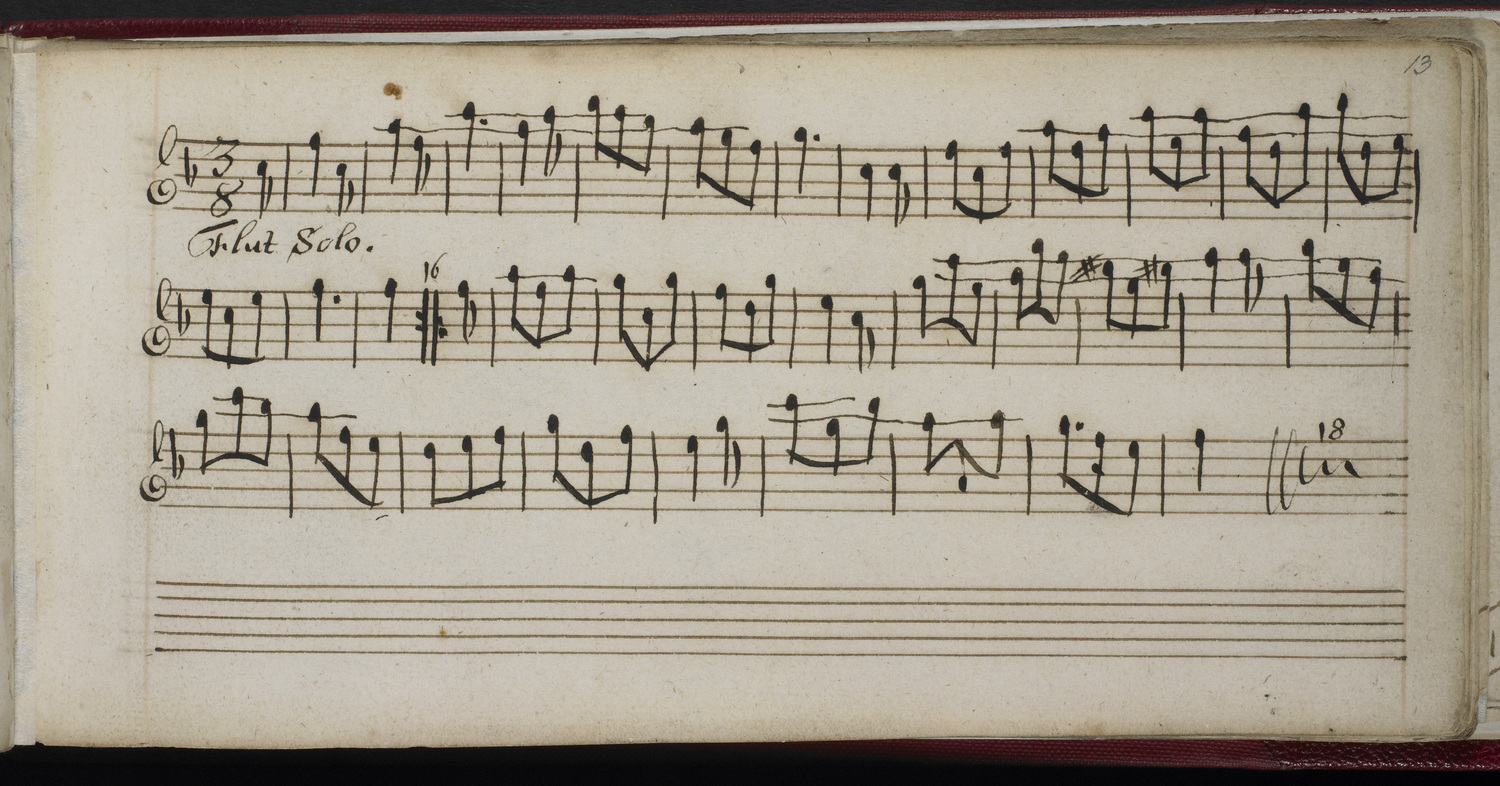 13
3
8
Flut Solo.
16
18